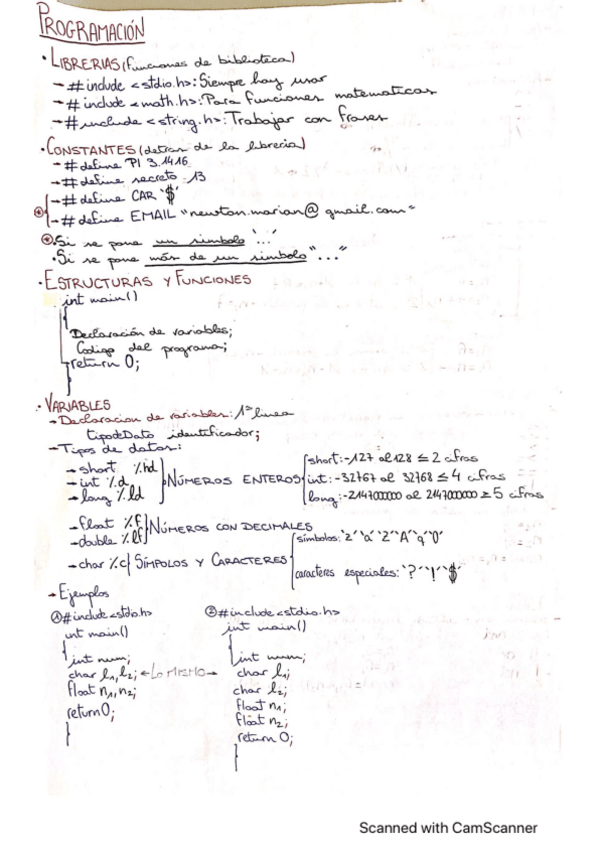 PROGRAMACIÓN
· LIBRERIAS (funciones de biblioteca)
→ # include <stdio.h>: Siempre hay usar
→ # include <math.h>: Para funciones matematicas
→ # include <string.h>: Trabajar con frases
· CONSTANTES (detras de la libreria)
→ # define PI 3.1416
→ # define secreto 13
→ # define CAR '$'
→ # define EMAIL "newton.marian@gmail.com"
Si se pone un simbolo '...'
· Si se pone más de un simbolo "..."
· ESTRUCTURAS Y FUNCIONES
int main()
{
Declaración de variables;
Codigo del programa;
return 0;
}
· VARIABLES
→ Declaracion de variables: 1ª linea
tipodeDato identificador;
→ Tipos de datos:
→ short %hd
→ int %d
→ long %ld
NÚMEROS ENTEROS
short: -127 al 128 ≤ 2 cifras
int: -32767 al 32768 ≤ 4 cifras
long: -2147000000 al 2147000000 ≥ 5 cifras
→ float %f
→ double %lf
NÚMEROS CON DECIMALES
→ char %c
SÍMPOLOS Y CARACTERES
símbolos: 'z' 'a' 'Z' 'A' 'q' '0'
caracteres especiales: '?' '!' '$'
→ Ejemplos
① #include <stdio.h>
int main()
{
int num;
char l1, l2; ← LO MISMO →
float n1, n2;
return 0;
}
② #include <stdio.h>
int main()
{
int num;
char l1;
char l2;
float n1;
float n2;
return 0;
}
Scanned with CamScanner